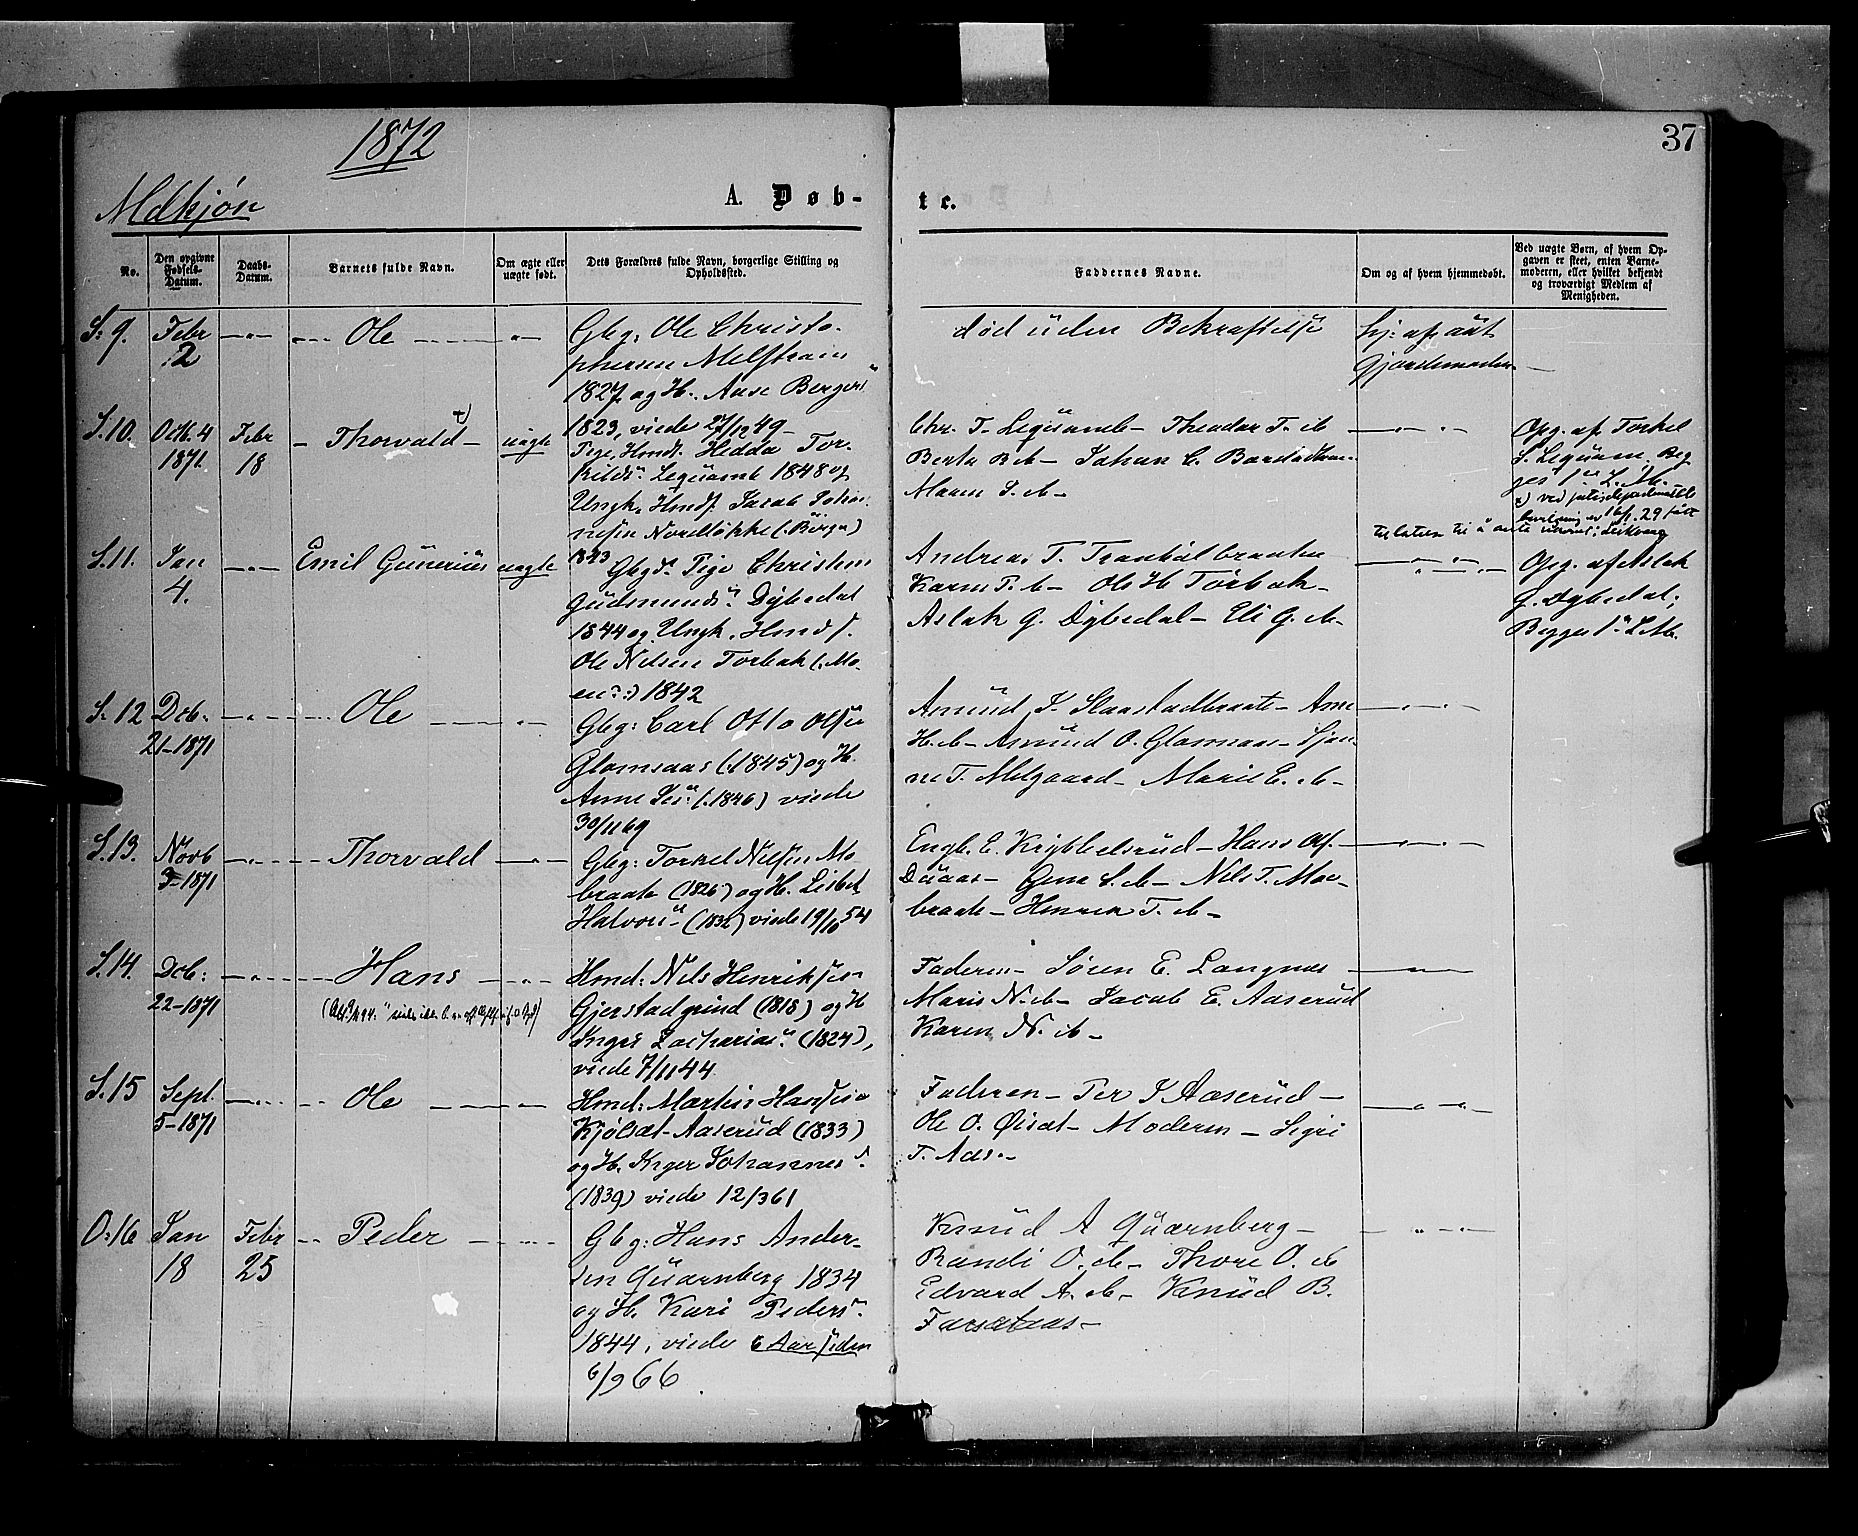 1872
37
Mdkjön
A. Døb-
te.
No.
Den opgivne Fødsels-Datum.
Daabs-Datum.
Barnets fulde Navn.
Om ægte eller uægte født.
Dets Forældres fulde Navn, borgerlige Stilling og Opholdssted.
Faddernes Navne.
Om og af hvem hjemmedøbt.
Ved uægte Børn, af hvem Opgaven er skeet, enten Barnemoderen, eller hvilket bekjendt og troværdigt Medlem af Menigheden.
S. 9. Febr 2 Ole
Gbg: Ole Christo-
phersen Melstrain
1827 og H. Aase Bergers
1823, viede 27/12 49
død uden Bekræftelse
hj: af aut
Gjordemoder
S. 10. Octb. 4 1871 Febr 18 Thorvald x) uægte
Pige, Hmdt. Hedda Tor-
kilds Lequamb 1848 og
Ungk. Hmdf. Jacob Johan
nesen Nordløkke (Börge)
1843
Chr. T. Lequamb - Theodor T. ib
Berta B ib - Johan C.
Maren S. ib -
Opg. af Torkel
S. Lequam. Beg
ges 1ste L. M.
S. 11. Jan 4. Emil Gunerius uægte
Gbgds Pige Christine
Gudmunds. Dybedal
1844 og Ungk. Hmdf.
Ole Nilsen Torbak (: Mo-
en :) 1842
Andreas T.
Karen T. ib - Ole H Torbak -
Aslak G. Dybedal - Eli G. ib -
Opg. af Aslak
G. Dybedal;
Begges 1ste L M.
S. 12 Dcb. 21-1871 Ole
Gbg: Carl Otto Olsen
Glamsaas (1845) og H.
Anne (1846) viede
30/11 69
Amund J. Slaastadbraate - Anne
H. ib - Amund O. Glamsaas -
ne T. Melgaard - Marie E. ib -
S. 13. Novb 3-1871 Thorvald
Gbg: Torkel Nilsen Mo-
braate (1826) og H. Lisbet
Halvors (1832) viede 19/10 54
Engb. E. Kribbelsrud - Hans Ols.
- Nils T. Moe-
braate - T. ib -
S. 14. Dcb: 22-1871 Hans
Hmd: Nils Henriksen
Gjerstadgrind (1818) og H
Inger Zacharias (1824),
viede 7/11 44
Faderen - Søren E. Langnes
Maris N. ib - Jacob E. Aaserud
Karen N. ib -
S. 15 Sept. 5-1871 Ole
Hmd: Martin Hansen
Kjölsæt-Aaserud (1833)
og H. Inger Johannes
(1839) viede 12/3 61
Faderen - Per J Aaserud -
Ole O. Øisæt - Moderen - Sigri
T. Aas. -
O: 16 Jan 18 Febr 25 Peder
Gbg: Hans Ander-
sen Quarnberg 1834
og H. Kari Peders
1844, viede 6 Aar siden
6/9 66
Knud A Quarnberg -
Randi O. ib - Thore O. ib
Edvard A. ib - Knud B.